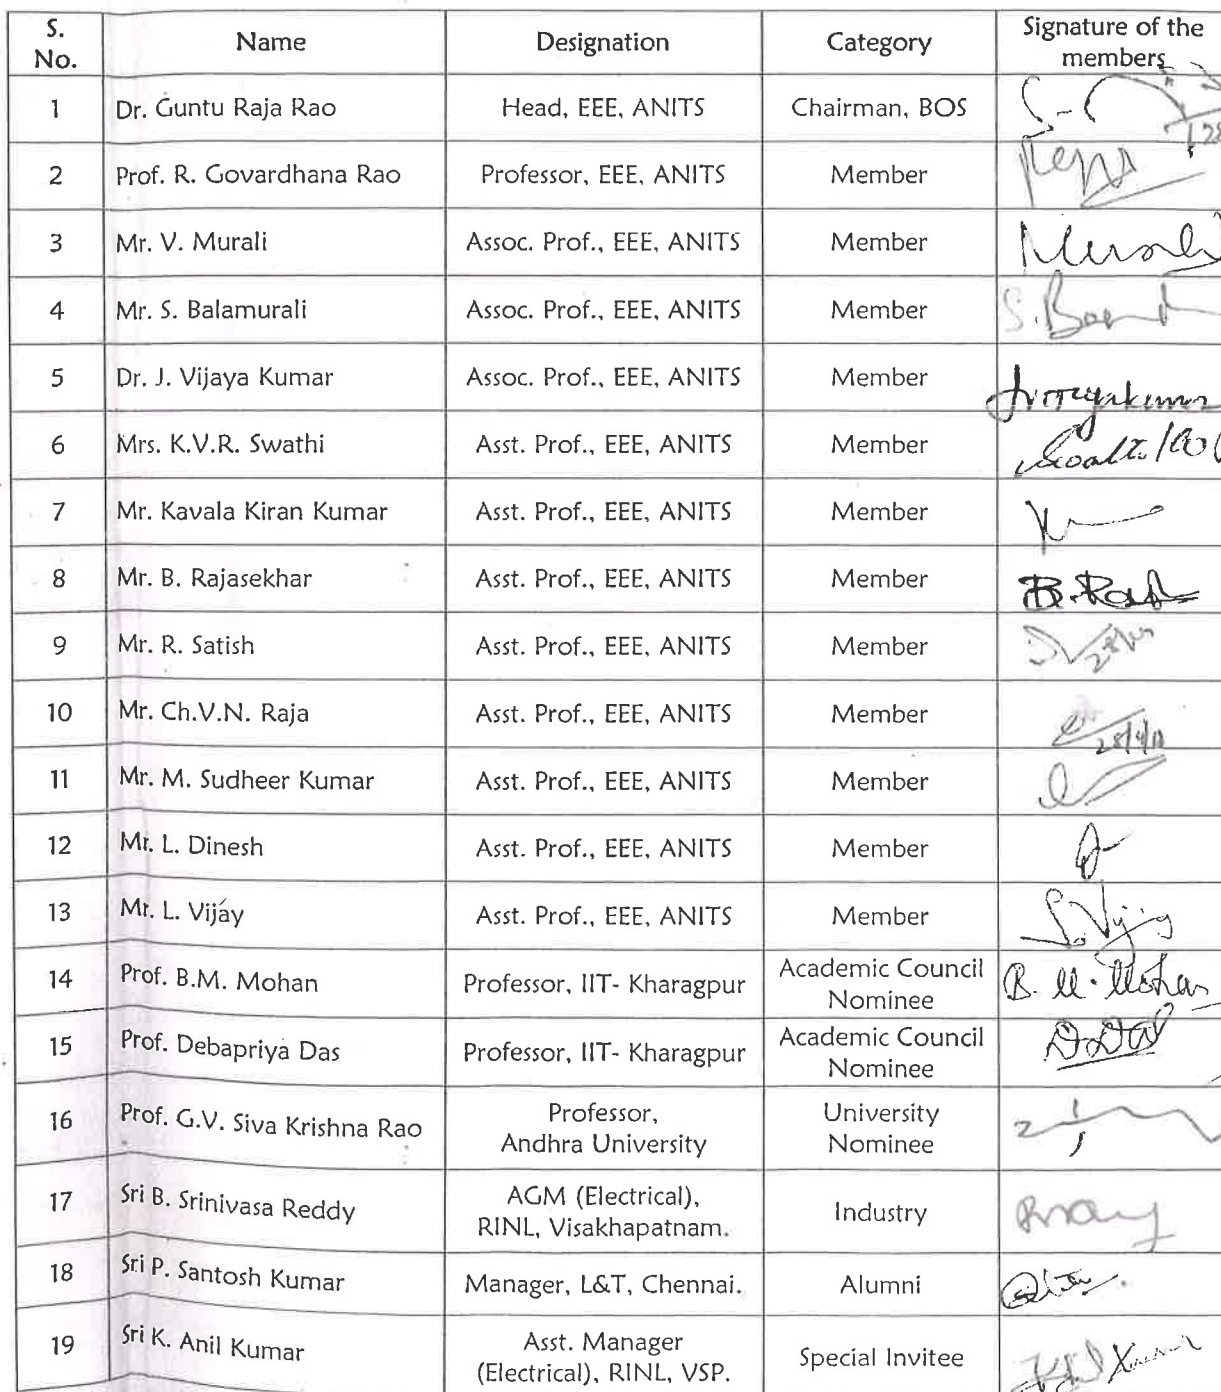 S. No. Name Designation Category Signature of the members
1 Dr. Guntu Raja Rao Head, EEE, ANITS Chairman, BOS
2 Prof. R. Govardhana Rao Professor, EEE, ANITS Member
3 Mr. V. Murali Assoc. Prof., EEE, ANITS Member Murali
4 Mr. S. Balamurali Assoc. Prof., EEE, ANITS Member
5 Dr. J. Vijaya Kumar Assoc. Prof., EEE, ANITS Member
6 Mrs. K.V.R. Swathi Asst. Prof., EEE, ANITS Member
7 Mr. Kavala Kiran Kumar Asst. Prof., EEE, ANITS Member
8 Mr. B. Rajasekhar Asst. Prof., EEE, ANITS Member
9 Mr. R. Satish Asst. Prof., EEE, ANITS Member
10 Mr. Ch.V.N. Raja Asst. Prof., EEE, ANITS Member
11 Mr. M. Sudheer Kumar Asst. Prof., EEE, ANITS Member
12 Mr. L. Dinesh Asst. Prof., EEE, ANITS Member
13 Mr. L. Vijay Asst. Prof., EEE, ANITS Member
14 Prof. B.M. Mohan Professor, IIT- Kharagpur Academic Council Nominee B. M. Mohan
15 Prof. Debapriya Das Professor, IIT- Kharagpur Academic Council Nominee
16 Prof. G.V. Siva Krishna Rao Professor, Andhra University University Nominee
17 Sri B. Srinivasa Reddy AGM (Electrical), RINL, Visakhapatnam. Industry
18 Sri P. Santosh Kumar Manager, L&T, Chennai. Alumni
19 Sri K. Anil Kumar Asst. Manager (Electrical), RINL, VSP. Special Invitee